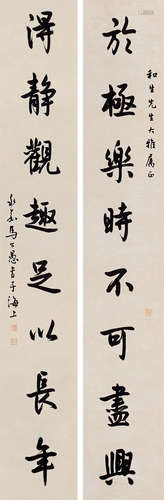 和生先生大雅属正
於極樂時不可盡興
得靜觀趣足以長年
永嘉馬公愚書于海上